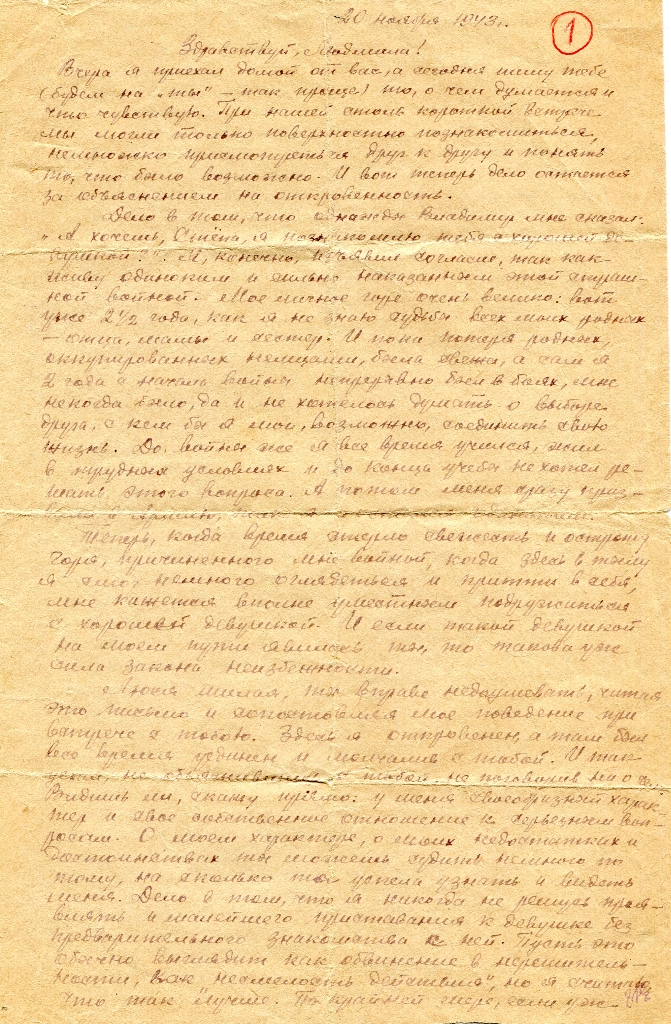 20 ноября 1943 г.
1
Здравствуй, Людмила!
Вчера я приехал домой от вас, а сегодня пишу тебе
(будем на "ты" - так проще) то, о чем думается и
что чувствую. При нашей столь короткой встрече
мы могли только поверхностно познакомиться,
немножко присмотреться друг к другу и понять
то, что было возможно. И вот теперь дело остается
за объяснением на откровенность.
Дело в том, что однажды Владимир мне сказал:
"А хочешь, Стёпа, я познакомлю тебя с хорошей де-
вушкой?". Я, конечно, изъявил согласие, так как
живу одиноким и сильно наказанным этой страш-
ной войной. Мое личное горе очень велико: вот
уже 2½ года, как я не знаю судьбы всех моих родных
- отца, мамы и сестер. И пока потеря родных,
оккупированных немцами, была свежа, а сам я
2 года с начала войны непрерывно был в боях, мне
некогда было, да и не хотелось думать о выборе
друга, с кем бы я мог, возможно, соединить свою
жизнь. До войны же я все время учился, жил
в трудных условиях и до конца учебы не хотел ре-
шать этого вопроса. А потом меня сразу приз-
вали в Армию,
Теперь, когда время стерло свежесть и остроту
горя, причиненного мне войной, когда здесь в тылу
я смог немного оглядеться и притти в себя,
мне кажется вполне уместным подружиться
с хорошей девушкой. И если такой девушкой
на моем пути явилась ты, то такова уж
сила закона неизбежности.
Люся милая, ты вправе недоумевать, читая
это письмо и сопоставляя мое поведение при
встрече с тобою. Здесь я откровенен, а там был
все время уединен и молчалив с тобой. И так
уехал, не объяснившись с тобой, не поговорив ни о
Видишь ли, скажу прямо: у меня своеобразный харак-
тер и свое собственное отношение к серьезным воп-
росам. О моем характере, о моих недостатках и
достоинствах ты можешь судить немного по
тому, на сколько ты успела узнать и видеть
меня. Дело в том, что я никогда не решусь проя-
влять и малейшего приставания к девушке без
предварительного знакомства с ней. Пусть это
обычно выглядит как обвинение в нерешитель-
ности, как "несмелость действия", но я считаю,
что так лучше. По крайней мере, если уж